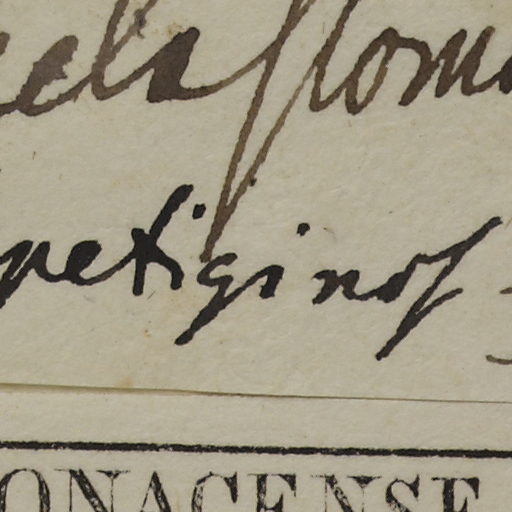 elastom
petiginos
ONACENSE